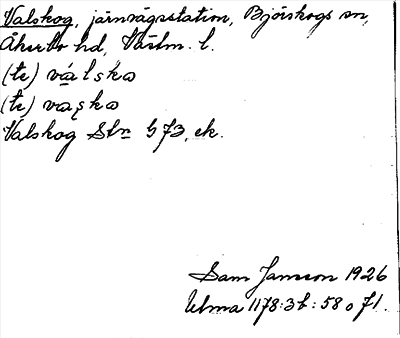 Valskog, järnvägsstation, Björskogs sn,
Åkerbo hd, Västm. l.
(te) válska
(te) vaska
Valskog Stn G 73, ek.
Sam Jansson 1926
Ulma 1178:3b: 58 o 71.